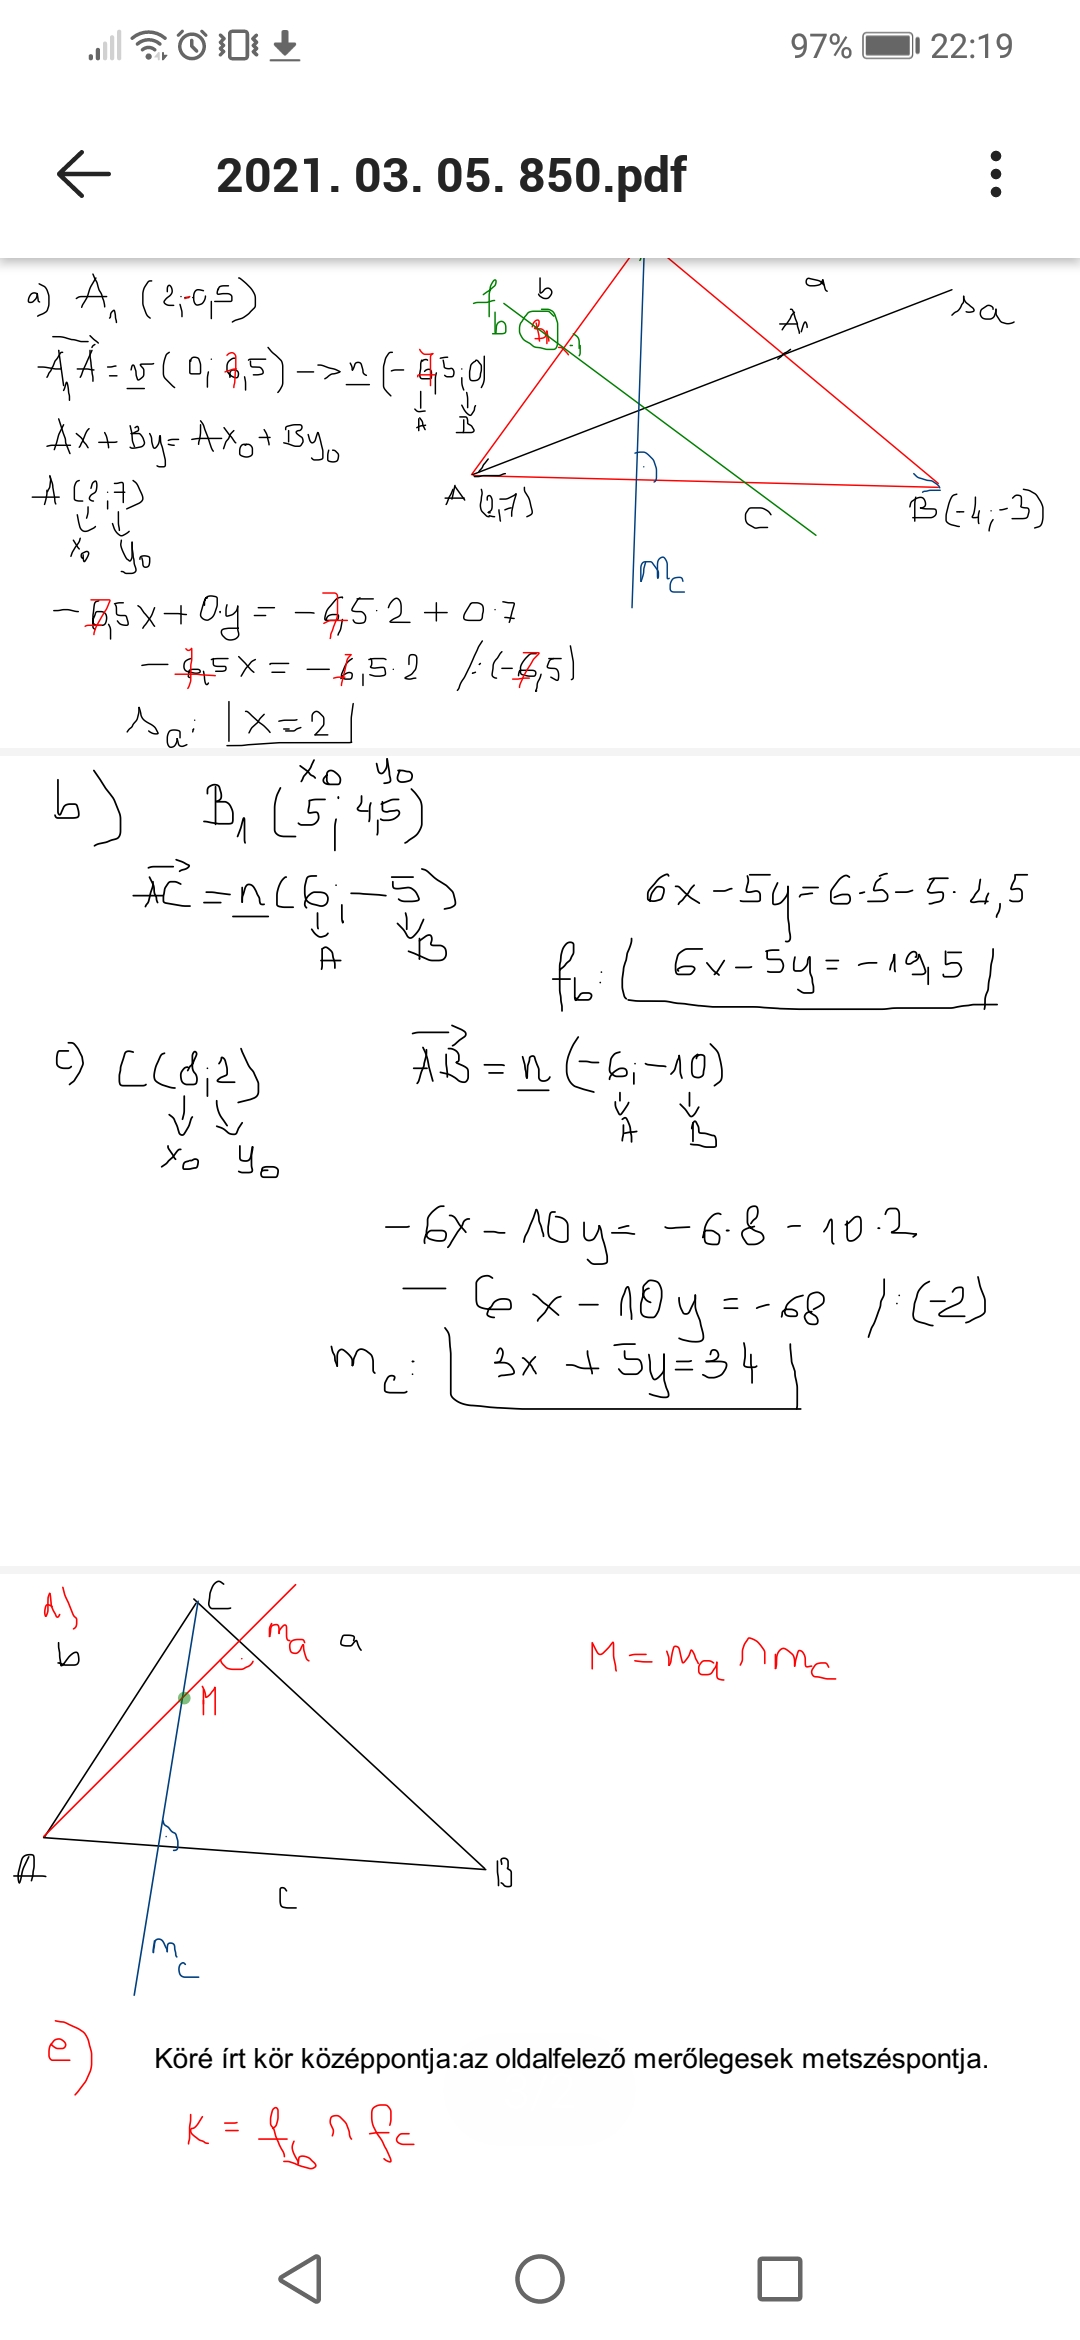 97% 22:19
2021. 03. 05. 850.pdf
a) A₁ (2;-0,5)
A₁A = v (0; 7,5) -> n (-7,5;0)
A B
Ax + By = Ax₀ + By₀
A (2;7)
x₀ y₀
-7,5x + 0y = -7,5·2 + 0·7
-7,5x = -7,5·2 /:(-7,5)
sa: x=2
fb b B₁ a A₁ sa
A (2,7) C B(-4;-3)
mc
b) B₁ (5; 4,5)
x₀ y₀
AC = n (6; -5)
A B
6x - 5y = 6·5 - 5·4,5
fb: 6x - 5y = -19,5
c) C(8;2)
x₀ y₀
AB = n (-6; -10)
A B
-6x - 10y = -6·8 - 10·2
-6x - 10y = -68 /:(-2)
mc: 3x + 5y = 34
d) C
b ma a
M
M = ma ∩ mc
A B
c
mc
e) Köré írt kör középpontja:az oldalfelező merőlegesek metszéspontja.
K = fb ∩ fc